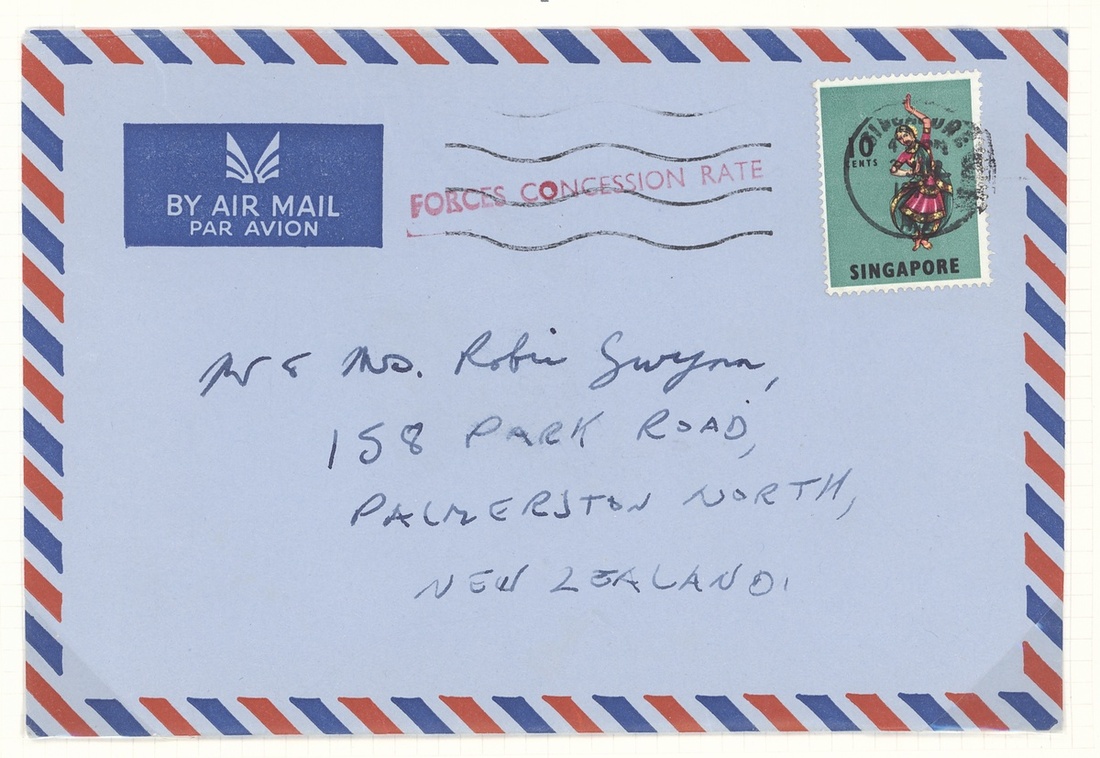 BY AIR MAIL
PAR AVION
FORCES CONCESSION RATE
10
CENTS
SINGAPORE
SINGAPORE
Mr & Mrs. Robin Gwynn,
158 PARK ROAD,
PALMERSTON NORTH,
NEW ZEALAND.